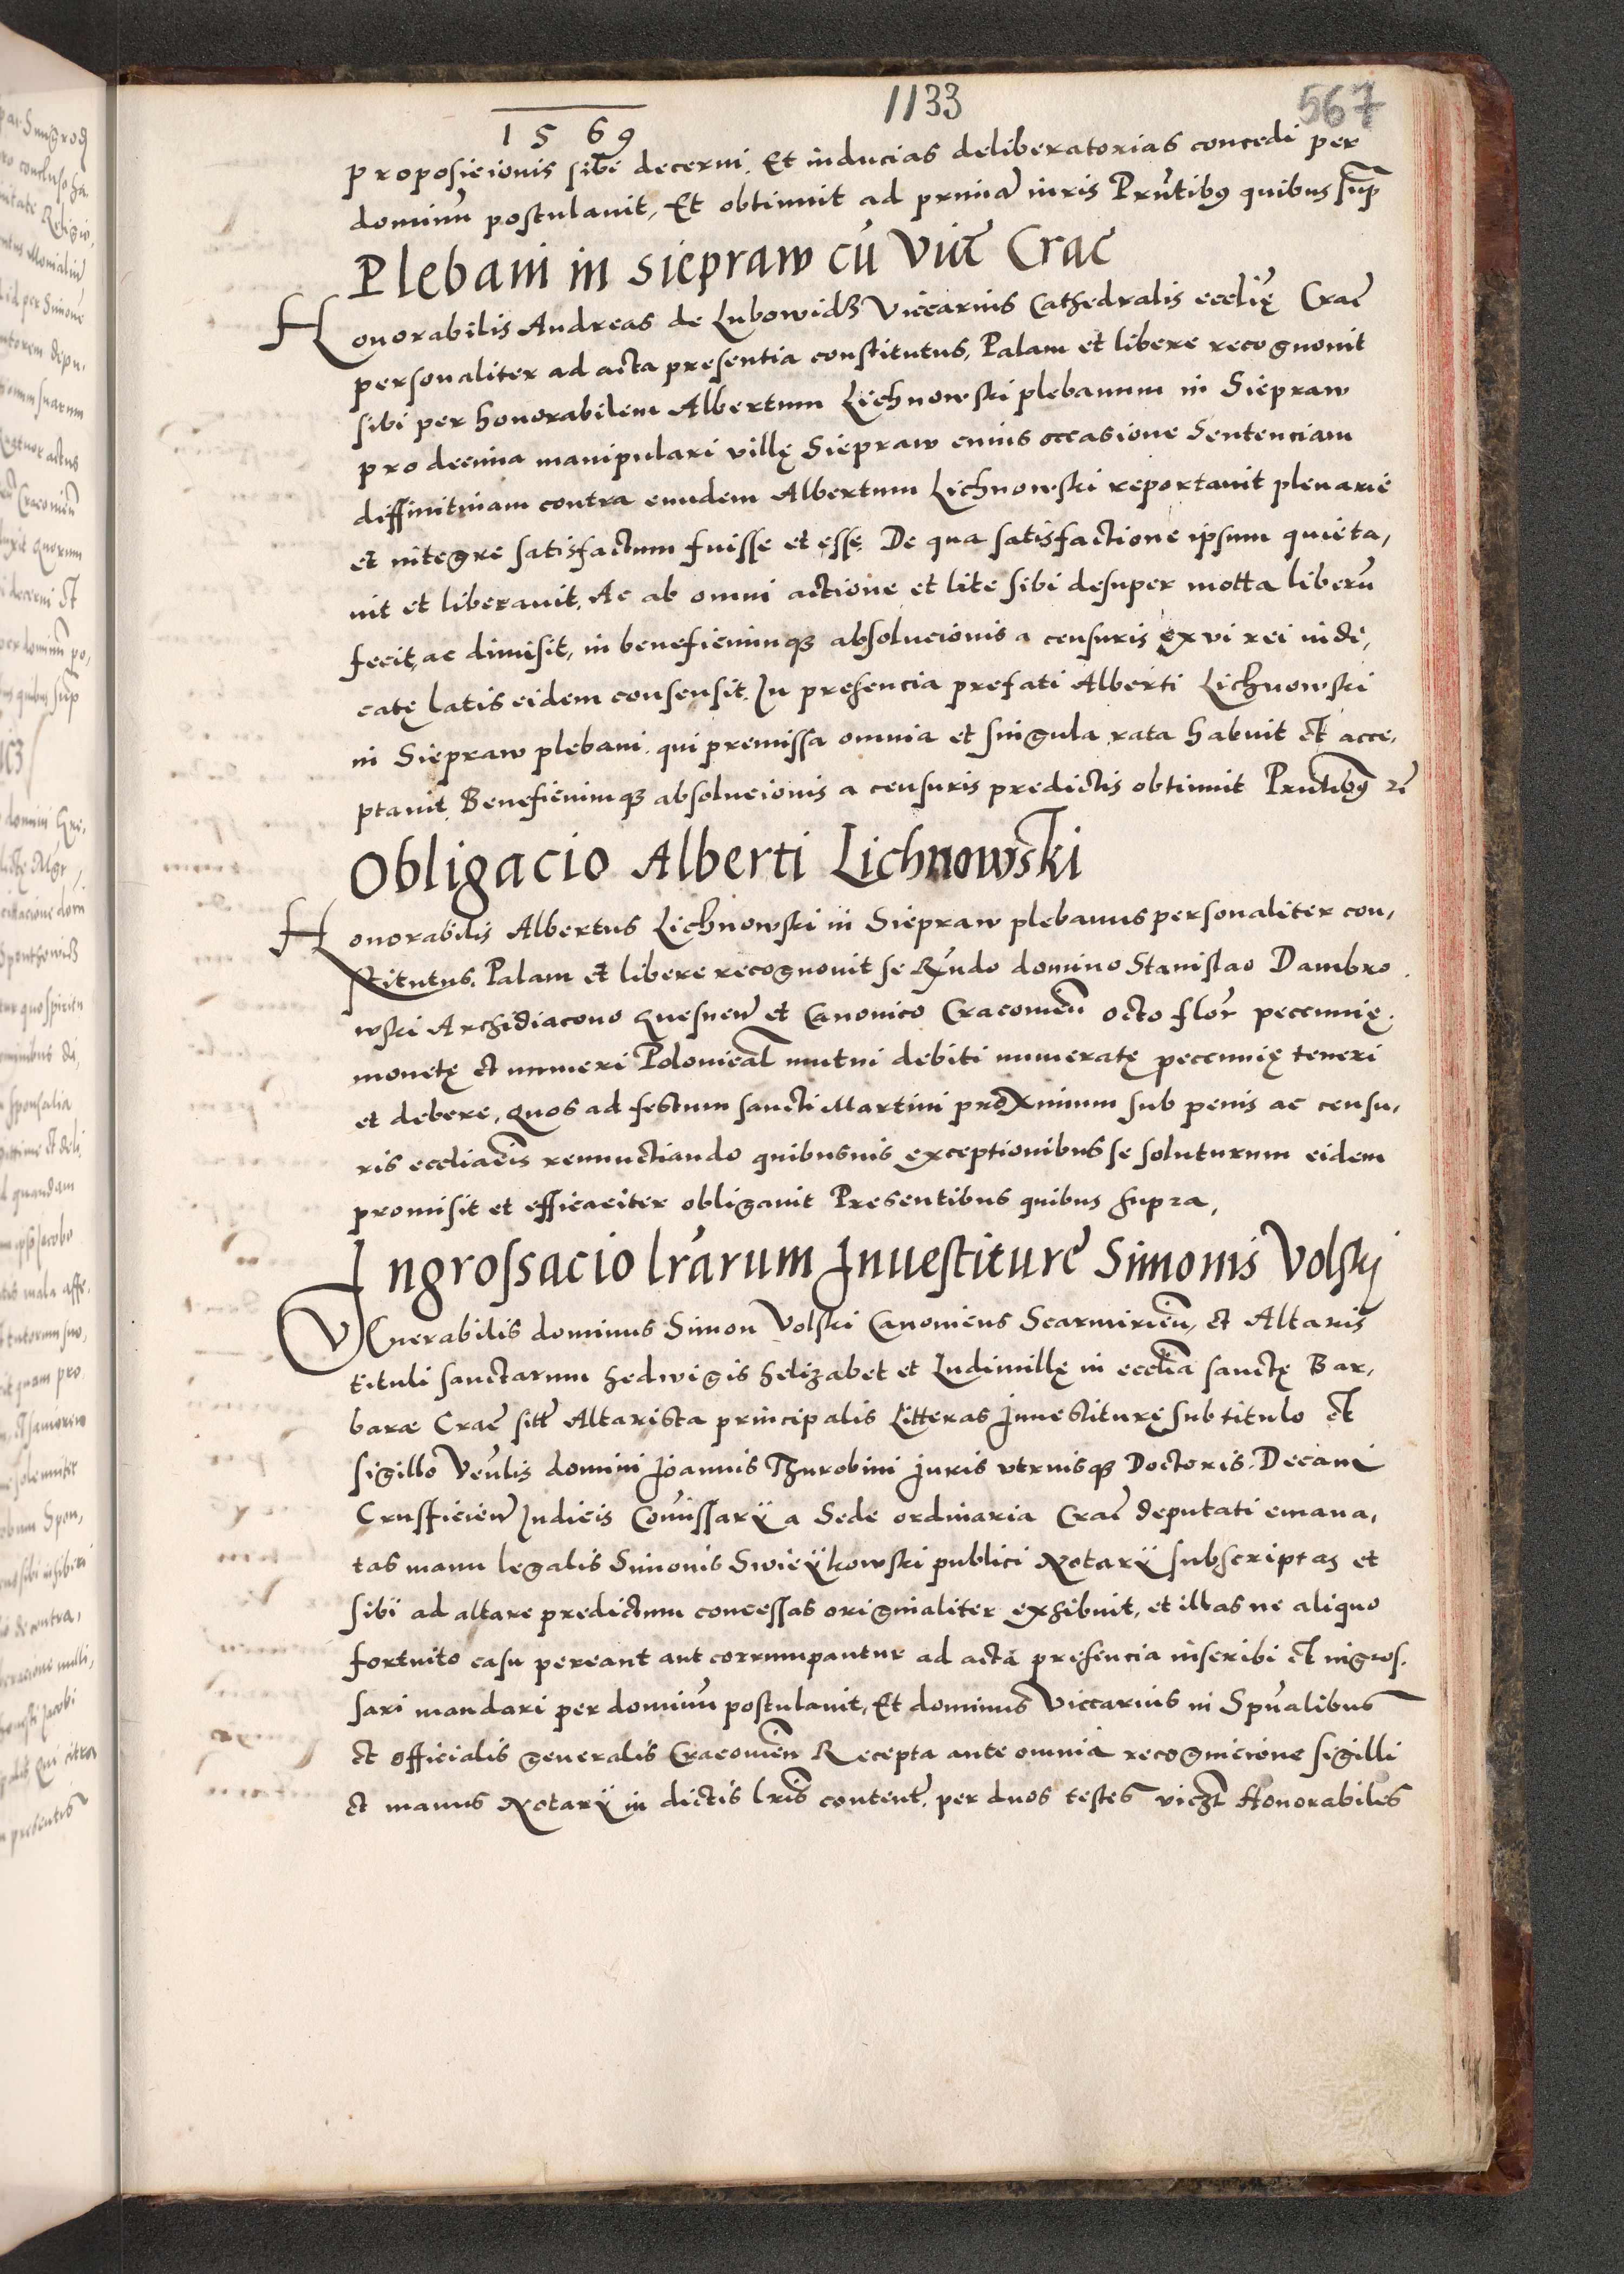 1133
567
1569
proposicionis sibi decerni. Et inducias deliberatorias concedi per
dominũ postulauit, Et obtinuit ad primã iuris Prñtibꝯ quibus sup̃
Plebani in siepraw cũ Vic̃ Crac̃
Honorabilis Andreas de Lubowidz Viccarius Cathedralis ecclię̃ Crac̃
personaliter ad acta presentia constitutus, Palam et libere recognouit
sibi per honorabilem Albertum Lichnowski plebanum in Siepraw
pro decima manipulari villę Siepraw cuius occasione Sentenciam
diffinitiuam contra eundem Albertum Lichnowski reportauit plenarie
et integre satisfactum fuisse et esse. De qua satisfactione ipsum quieta,
uit et liberauit, Ac ab omni actione et lite sibi desuper motta liberũ
fecit, ac dimisit, in beneficiumqꝫ absolucionis a censuris ex vi rei iudi,
catę latis eidem consensit. In presencia prefati Alberti Lichnowski
in Siepraw plebani. qui premissa omnia et singula rata habuit et acce,
ptauit, Beneficiumqꝫ absolucionis a censuris predictis obtinuit Prñtibꝯ
Obligacio Alberti Lichnowski
Honorabilis Albertus Lichnowski in Siepraw plebanus personaliter con,
stitutus. Palam et libere recognouit se Rñdo domino Stanislao Dambro
wski Archidiacono Gnesneñ et Canonico Cracouieñ octo flor̃ peccunię.
monetę et numeri Polonical̃ mutui debiti numeratę peccunię teneri
et debere, quos ad festum sancti Martini proximum sub penis ac censu,
ris ecclĩacis renunctiando quibusuis exceptionibus se soluturum eidem
promisit et efficaciter obligauit Presentibus quibus supra,
Ingrossacio lr̃arum Inuestiturę̃ Simonis Volskj
Venerabilis dominus Simon Volski Canonicus Scarmirieñ, et Altaris
tituli sanctarum hedwigis helizabet et Ludimillę in ecclĩa sanctę Bar,
barae Crac̃ sitt̃ Altarista principalis Litteras Inuestiturę sub titulo et
sigillo Veñlis domini Joannis Thurobini Juris vtriusqꝫ Doctoris. Decani
Crusficieñ Iudicis Com̃issarÿ a Sede ordinaria Crac̃ deputati emana,
tas manu legalis Simonis Swieÿkowski publici Notarÿ subscriptas et
sibi ad altare predictum concessas originaliter exhibuit, et illas ne aliquo
fortuito casu pereant aut corrumpantur ad acta presencia inscribi et ingros.
sari mandari per dominũ postulauit, Et dominus Viccarius in Spũalibus
et officialis generalis Cracouieñ Recepta ante omnia recognicione sigilli
et manus Notarÿ in dictis lr̃is content̃. per duos testes viczt̃ Honorabiles